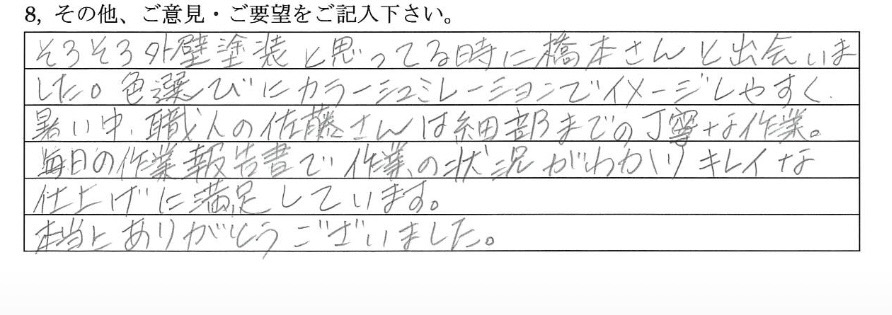 8, その他、ご意見・ご要望をご記入下さい。
そろそろ外壁塗装と思ってる時に橋本さんと出会いま
した。色選びにカラーシュミレーションでイメージしやすく、
暑い中、職人の佐藤さんは細部までの丁寧な作業。
毎日の作業報告書で作業の状況がわかりキレイな
仕上げに満足しています。
本当にありがとうございました。